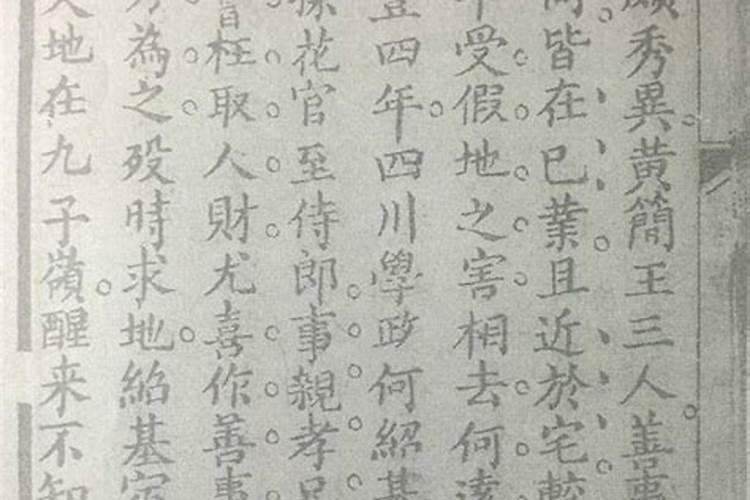 秀異黄簡王三人善
皆在已業且近於宅較
受假地之害相去何遠
登四年四川學政何紹基
探花官至侍郎事親孝
枉取人財尤喜作善事
為之殁時求地紹基
地在九子嶺醒来不知